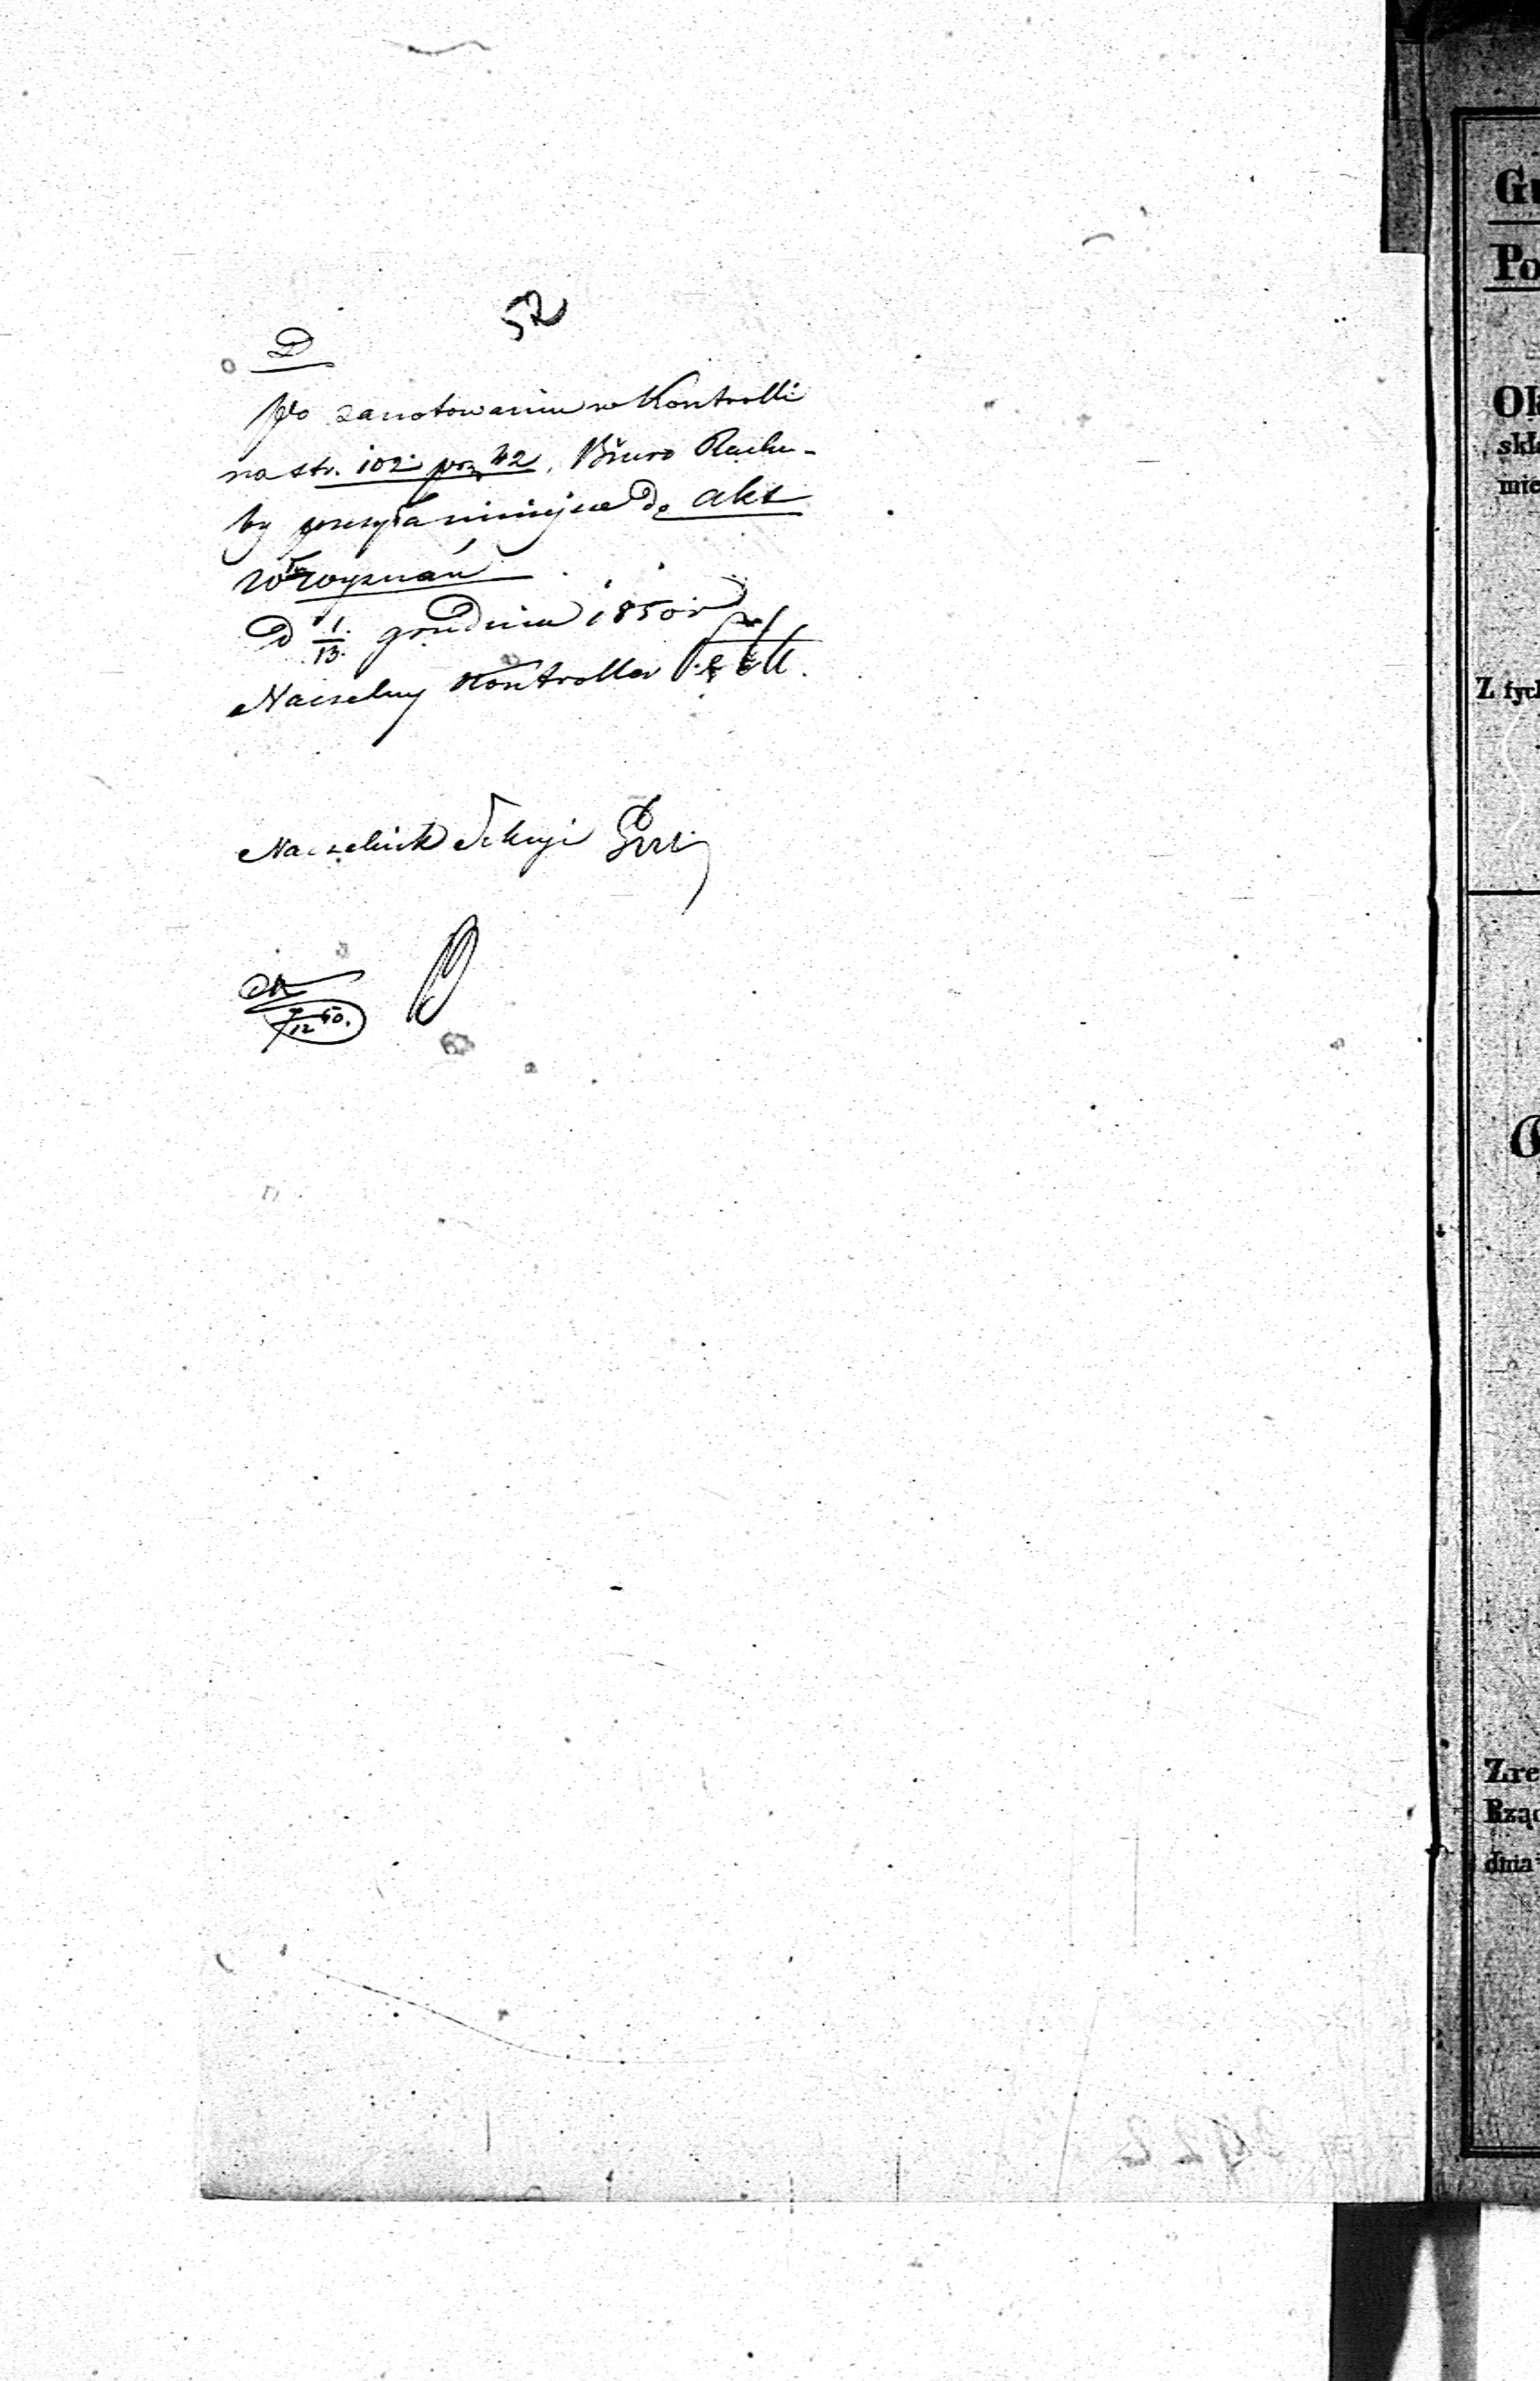 52
D
Po zanotowaniu w Kontrolli
na str. 102 poz. 42, Biuro Rachu-
by przesyła niniejsze do akt
Wyznań
D 1/13 grudnia 1850 r
Naczelny Kontroller
Naczelnik Sekcyi
12 50.
Gu
Po
Ok
skła
mie
Z tych
Zre
Rząd
dnia